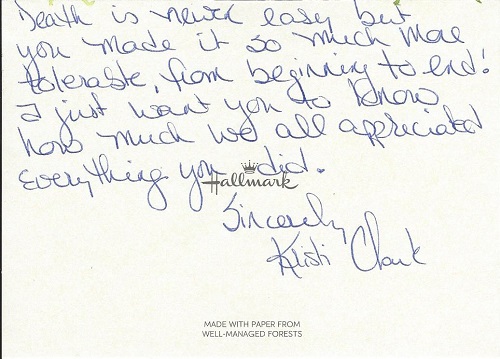 Death is never easy but
you made it so much more
tolerable, from beginning to end!
I just want you to know
how much we all appreciated
everything you did.
Hallmark
Sincerely
Kristi Clark
MADE WITH PAPER FROM
WELL-MANAGED FORESTS